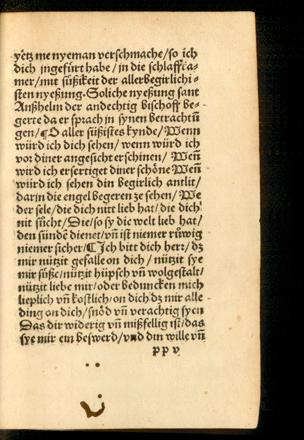 yetz me nyeman verschmache/so ich
dich ingefürt habe/in die schlaffka-
mer/mit süßikeit der allerbegirlichi-
sten nyeßung. Soliche nyeßung sant
Anßhelm der andechtig bischoff be-
gerte da er sprach in synen betrachtū
gen/¶O aller süßistes kynde/Wenn
würd ich dich sehen/wenn würd ich
vor diner angesicht erschinen/Weñ
würd ich ersettiget diner schöne Weñ
würd ich sehen din begirlich antlit/
dar in die engel begeren ze sehen/We
der sele/die dich nitt lieb hat/die dich
nit sücht/Die/so sy die welt lieb hat/
den sünde dienet/vñ ist niemer rüwig
niemer sicher/¶Ich bitt dich hert/dz
mir nützit gefalle on dich/nützit sye
mir süße/nützit hüpsch vñ wolgestalt/
nützit liebe mir/oder beduncken mich
lieplich vñ kostlich/on dich dz mir alle
ding on dich/snöd vñ verachtig syen
Das dir widerig vñ mißfellig ist/das
sye mir ein beswerd/vnd din wille vñ
pp v